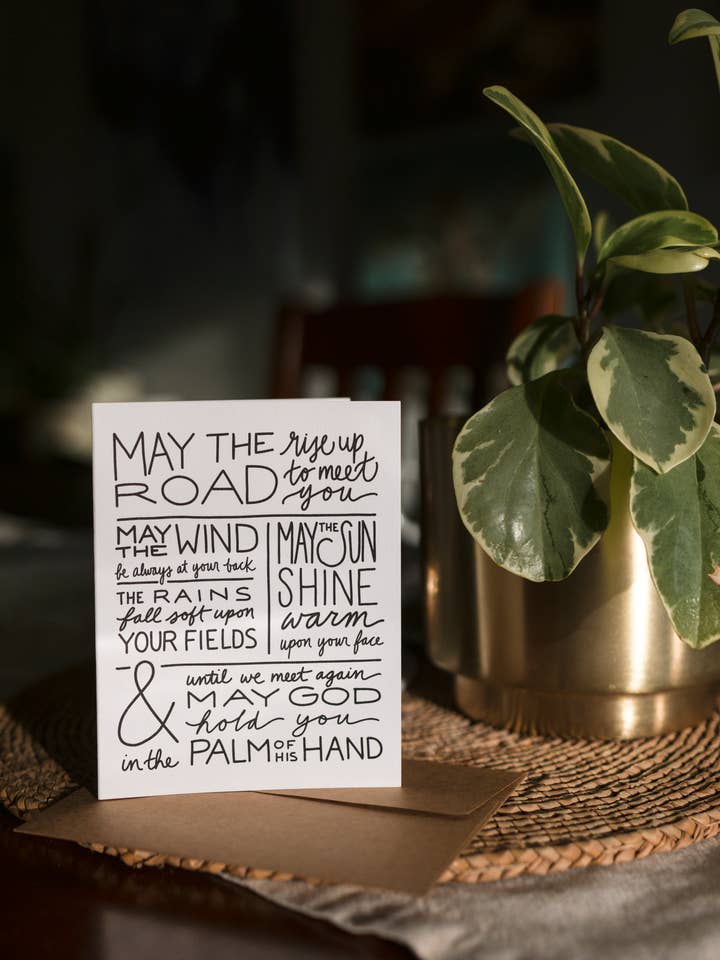 MAY THE rise up
ROAD to meet
you
MAY THE WIND
be always at your back
MAY THE SUN
SHINE
warm
upon your face
THE RAINS
fall soft upon
YOUR FIELDS
& until we meet again
MAY GOD
hold you
in the PALM OF HIS HAND